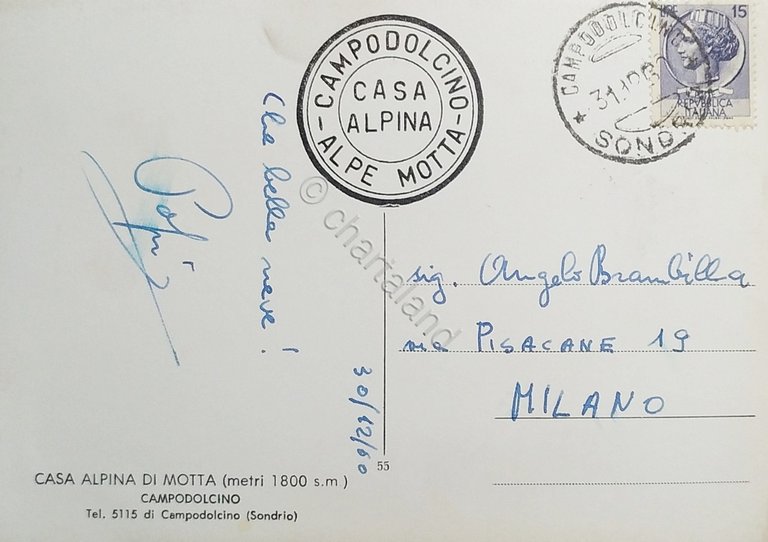 CAMPODOLCINO
CASA
ALPINA
ALPE MOTTA
CAMPODOLCINO
31.12.60
SONDRIO
15
REPVBBLICA
ITALIANA
Che bella neve!
30/12/60
sig. Angelo Brambilla
via PISACANE 19
MILANO
55
CASA ALPINA DI MOTTA (metri 1800 s.m)
CAMPODOLCINO
Tel. 5115 di Campodolcino (Sondrio)
© chartaland